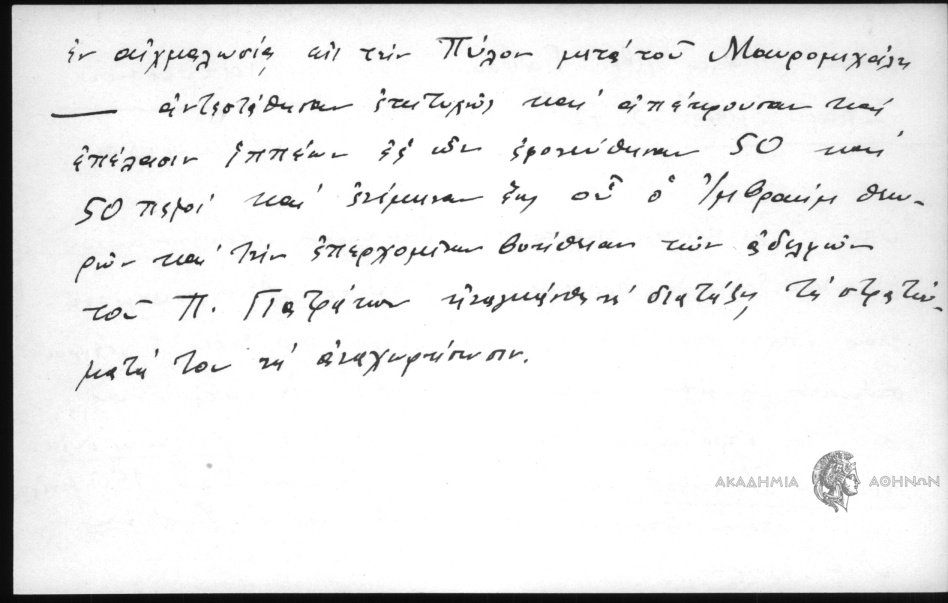 ἐν αἰχμαλωσίᾳ εἰς τὴν Πύλον μετὰ τοῦ Μαυρομιχάλη
— ἀντεστάθησαν ἐπιτυχῶς καὶ ἀπέκρουσαν καὶ
ἐπέλασιν ἱππέων ἐξ ὧν ἐφονεύθησαν 50 καὶ
50 πεζοί καὶ ἐνέμειναν ἕως οὗ ὁ Ἰμβραήμ θεω-
ρῶν καὶ τὴν ἐπερχομένην βοήθειαν τῶν ἀδελφῶν
τοῦ Π. Πατρῶν ἠναγκάσθη νὰ διατάξῃ τὰ στρατεύ-
ματά του νὰ ἀναχωρήσωσιν.
ΑΚΑΔΗΜΙΑ ΑΘΗΝΩΝ